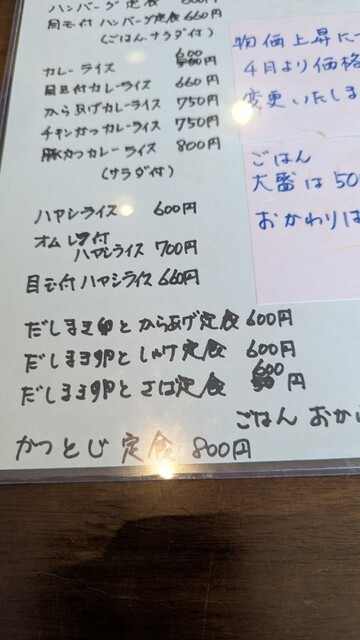 ハンバーグ定食 600円
目玉付 ハンバーグ定食 660円
(ごはん、サラダ付)
カレーライス 600円
目玉付カレーライス 660円
からあげカレーライス 750円
チキンカツカレーライス 750円
豚カツカレーライス 800円
(サラダ付)
ハヤシライス 600円
オムレツ付
ハヤシライス 700円
目玉付ハヤシライス 660円
だしまき卵とからあげ定食 600円
だしまき卵としゃけ定食 600円
だしまき卵とさば定食 600円
ごはん おか
かつとじ定食 800円
物価上昇に
4月より価格
変更いたしま
ごはん
大盛は50
おかわりは